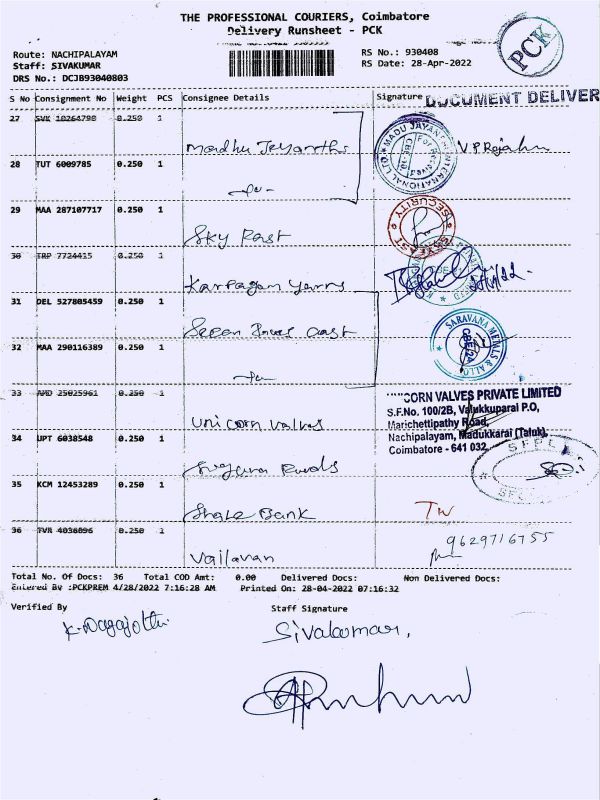 THE PROFESSIONAL COURIERS, Coimbatore
Delivery Runsheet - PCK
PCK
Route: NACHIPALAYAM
RS No.: 930408
Staff: SIVAKUMAR
RS Date: 28-Apr-2022
DRS No.: DCJB93040803
S No Consignment No Weight PCS Consignee Details Signature
DOCUMENT DELIVER
27 SVK 10264790 0.250 1
Madhu Jeyanthi
28 TUT 6009785 0.250 1
-do-
MADU JAYANTHI INTERNATIONAL LTD
29 MAA 287107717 0.250 1
Sky East
SECURITY
30 TRP 7724415 0.250 1
Karpagam Yarns
31 DEL 527805459 0.250 1
32 MAA 290116389 0.250 1
-do-
SARAVANA METALS & ALLO
33 AMD 25025961 0.250 1
Unicorn Valves
CORN VALVES PRIVATE LIMITED
S.F.No. 100/2B, Valukkuparai P.O,
Marichettipathy Road,
Nachipalayam, Madukkarai (Taluk),
Coimbatore - 641 032.
34 UPT 6038548 0.250 1
SFPL
35 KCM 12453289 0.250 1
Bank
TW
36 TVR 4036096 0.250 1
9629716755
Total No. Of Docs: 36 Total COD Amt: 0.00 Delivered Docs: Non Delivered Docs:
Entered By :PCKPREM 4/28/2022 7:16:28 AM Printed On: 28-04-2022 07:16:32
Verified By Staff Signature
Sivakumar,